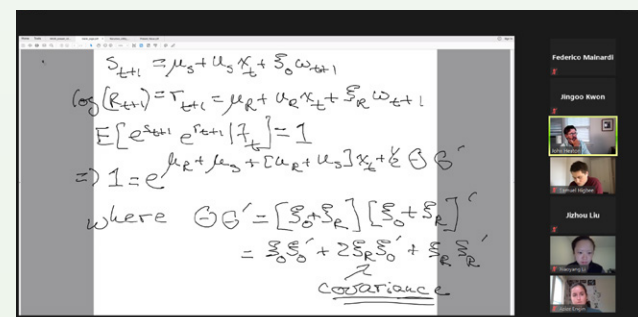 S_{t+1} = μ_s + u_s x_t + ξ_0 ω_{t+1}
log(R_{t+1}) = r_{t+1} = μ_R + u_R x_t + ξ_R ω_{t+1}
E[e^{s_{t+1}} e^{r_{t+1}} | F_t] = 1
=> 1 = e^{μ_R + μ_s + [u_R + u_s] x_t + ½ σσ'}
where σσ' = [ξ_0 + ξ_R][ξ_0 + ξ_R]'
= ξ_0 ξ_0' + 2 ξ_R ξ_0' + ξ_R ξ_R'
covariance
Federico Mainardi
Jingoo Kwon
Samuel Higbee
Jizhou Liu